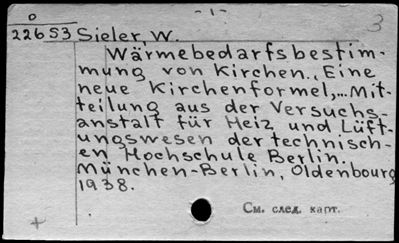 - 1 -
D
3
22653 Sieler, W.
Wärmebedarfsbestim-
mung von Kirchen., Eine
neue Kirchenformel,... Mit-
teilung aus der Versuchs-
anstalt für Heiz und Lüft-
ungswesen der technisch-
en Hochschule Berlin.
München-Berlin, Oldenbourg
1938.
См. след. карт.
+